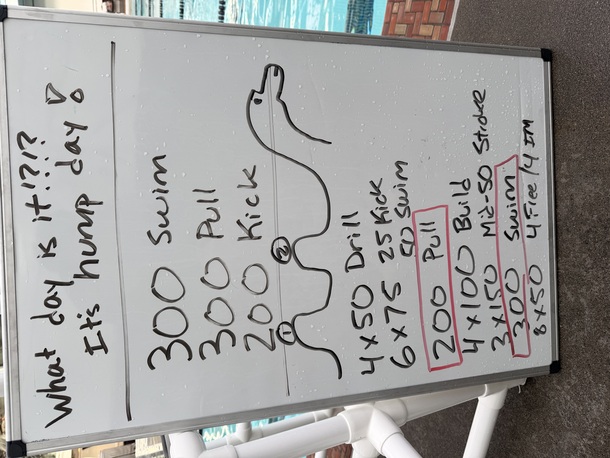 What day is it!?!?
It's hump day!
300 Swim
300 Pull
200 Kick
1 2
4 x 50 Drill
6 x 75 25 Kick
50 Swim
200 Pull
4 x 100 Build
3 x 150 Mid-50 Stroke
300 Swim
8 x 50 4 Free/4 IM